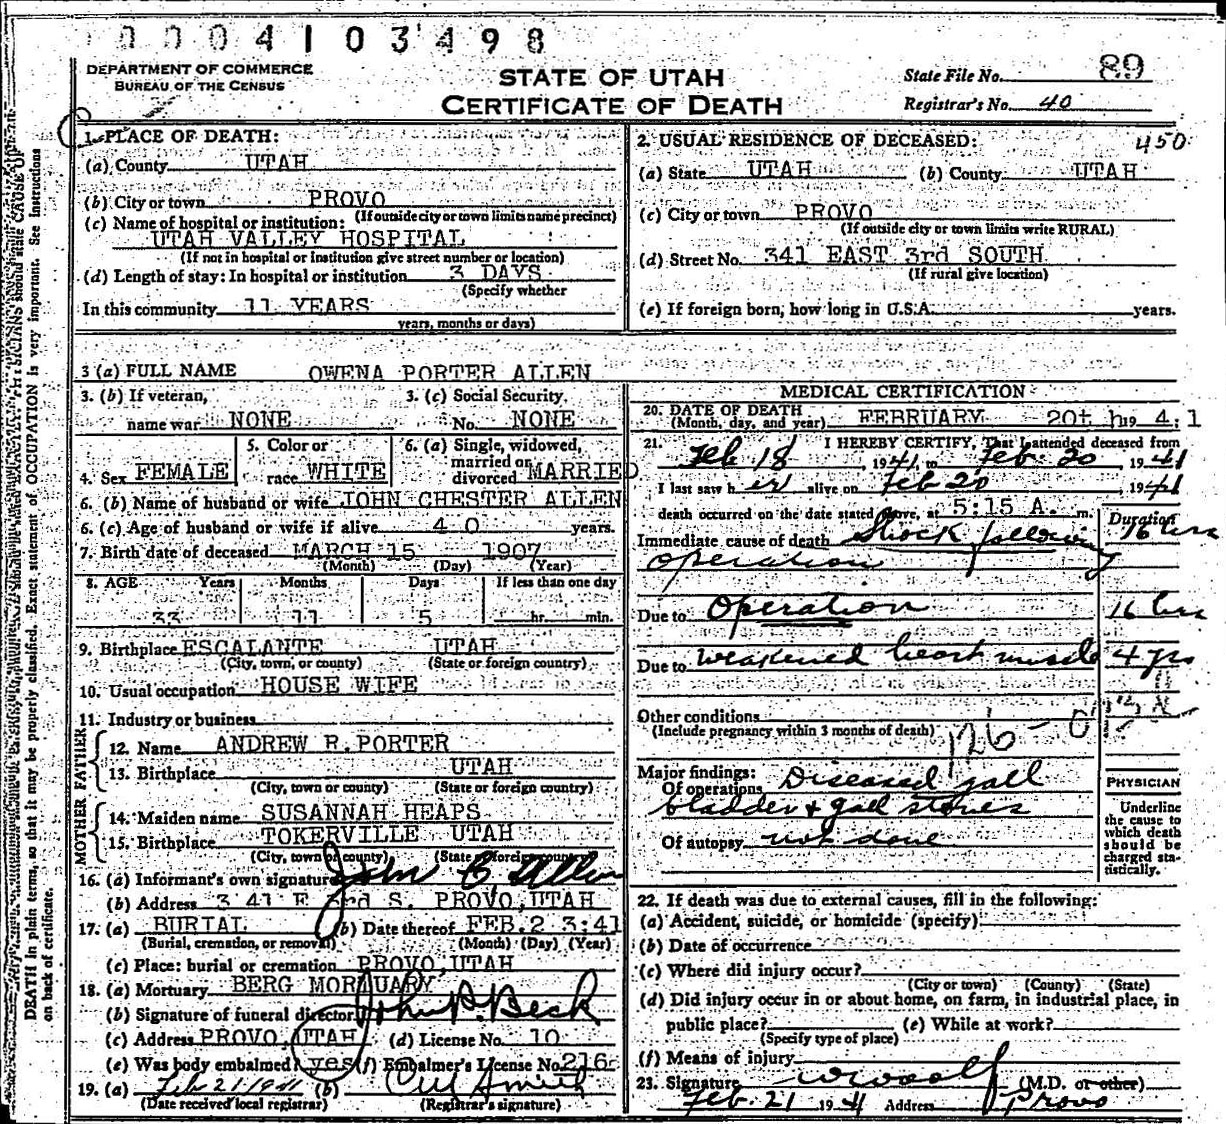 0004103498
DEPARTMENT OF COMMERCE
BUREAU OF THE CENSUS
STATE OF UTAH
CERTIFICATE OF DEATH
State File No. 89
Registrar's No. 40
1. PLACE OF DEATH:
(a) County UTAH
(b) City or town PROVO
(If outside city or town limits name precinct)
(c) Name of hospital or institution:
UTAH VALLEY HOSPITAL
(If not in hospital or institution give street number or location)
(d) Length of stay: In hospital or institution 3 DAYS
(Specify whether
In this community 11 YEARS
years, months or days)
2. USUAL RESIDENCE OF DECEASED: 450
(a) State UTAH (b) County UTAH
(c) City or town PROVO
(If outside city or town limits write RURAL)
(d) Street No. 341 EAST 3rd SOUTH
(If rural give location)
(e) If foreign born, how long in U.S.A. years.
3 (a) FULL NAME OWENA PORTER ALLEN
3. (b) If veteran, 3. (c) Social Security
name war NONE No. NONE
4. Sex FEMALE
5. Color or
race WHITE
6. (a) Single, widowed,
married or
divorced MARRIED
6. (b) Name of husband or wife JOHN CHESTER ALLEN
6. (c) Age of husband or wife if alive 40 years.
7. Birth date of deceased MARCH 15 1907
(Month) (Day) (Year)
8. AGE Years Months Days If less than one day
33 11 5 hr. min.
9. Birthplace ESCALANTE UTAH
(City, town, or county) (State or foreign country)
10. Usual occupation HOUSE WIFE
11. Industry or business
FATHER
12. Name ANDREW R. PORTER
13. Birthplace UTAH
(City, town or county) (State or foreign country)
MOTHER
14. Maiden name SUSANNAH HEAPS
15. Birthplace TOKERVILLE UTAH
(City, town or county) (State or foreign country)
16. (a) Informant's own signature John C. Allen
(b) Address 341 E 3rd S. PROVO, UTAH
17. (a) BURIAL (b) Date thereof FEB. 2 3:41
(Burial, cremation, or removal) (Month) (Day) (Year)
(c) Place: burial or cremation PROVO, UTAH
18. (a) Mortuary BERG MORTUARY
(b) Signature of funeral director John P. Beck
(c) Address PROVO, UTAH (d) License No. 10
(e) Was body embalmed? yes (f) Embalmer's License No. 216
19. (a) Feb 21 1941 (b) Smith
(Date received local registrar) (Registrar's signature)
MEDICAL CERTIFICATION
20. DATE OF DEATH
(Month, day, and year) FEBRUARY 20th 19 41
21. I HEREBY CERTIFY, That I attended deceased from
Feb 18, 1941, to Feb. 20 1941
I last saw her alive on Feb 20, 1941
death occurred on the date stated above, at 5:15 A. m.
Duration
Immediate cause of death Shock following 16 hrs
operation
Due to Operation 16 hrs
Due to weakened heart muscle 4 yrs
Other conditions
(Include pregnancy within 3 months of death)
126-0
Major findings:
Of operations Diseased gall
bladder + gall stones
Of autopsy not done
PHYSICIAN
Underline
the cause to
which death
should be
charged sta-
tistically.
22. If death was due to external causes, fill in the following:
(a) Accident, suicide, or homicide (specify)
(b) Date of occurrence
(c) Where did injury occur?
(City or town) (County) (State)
(d) Did injury occur in or about home, on farm, in industrial place, in
public place? (e) While at work?
(Specify type of place)
(f) Means of injury
23. Signature W Woolf (M.D. or other)
Feb. 21 1941 Address Provo
DEATH in plain terms, so that it may be properly classified. Exact statement of OCCUPATION is very important. See instructions
on back of certificate.